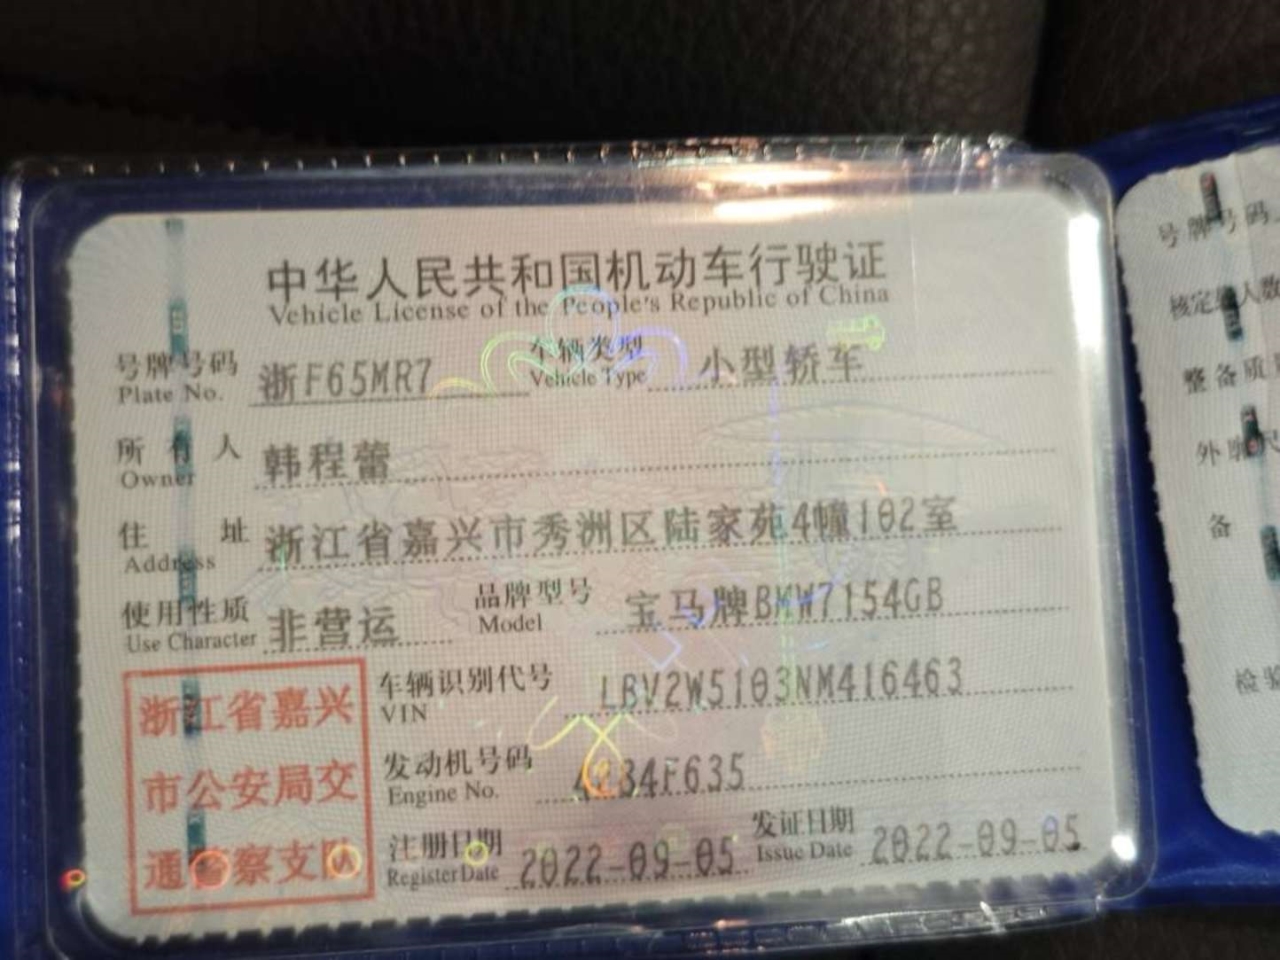 中华人民共和国机动车行驶证
Vehicle License of the People's Republic of China
号牌号码 浙F65MR7 车辆类型 小型轿车
Plate No. Vehicle Type
所有人 韩程蕾
Owner
住址 浙江省嘉兴市秀洲区陆家苑4幢102室
Address
使用性质 非营运 品牌型号 宝马牌BMW7154GB
Use Character Model
浙江省嘉兴
市公安局交
通警察支队
车辆识别代号 LBV2W5103NM416463
VIN
发动机号码
Engine No.
注册日期 2022-09-05 发证日期 2022-09-05
Register Date Issue Date
号牌号码
核定载人数
整备质
备
检验